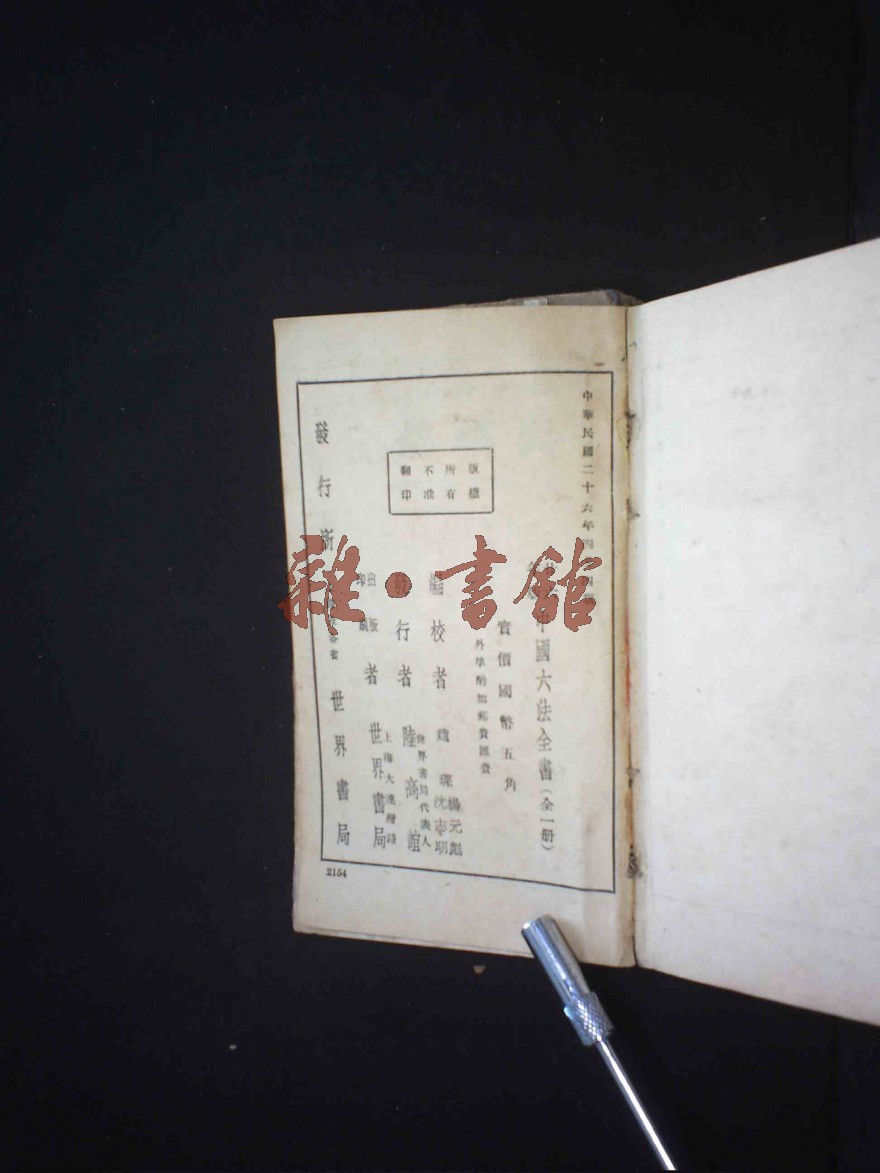 中華民國二十六年四
中國六法全書(全一冊)
實價國幣五角
外埠酌加郵費匯費
版權
所有
不准
翻印
編校者
楊元彪
沈志明
發行者
世界書局代表人
陸高誼
出版
印刷
者
上海大連灣路
世界書局
發行所
各省
世界書局
2154
雜·書館